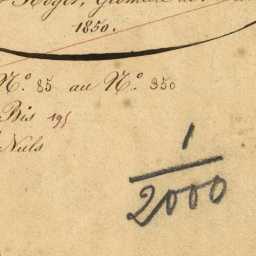 1850.
N.º 85 au N.º 350
Bis 195
Nuls
1
2000